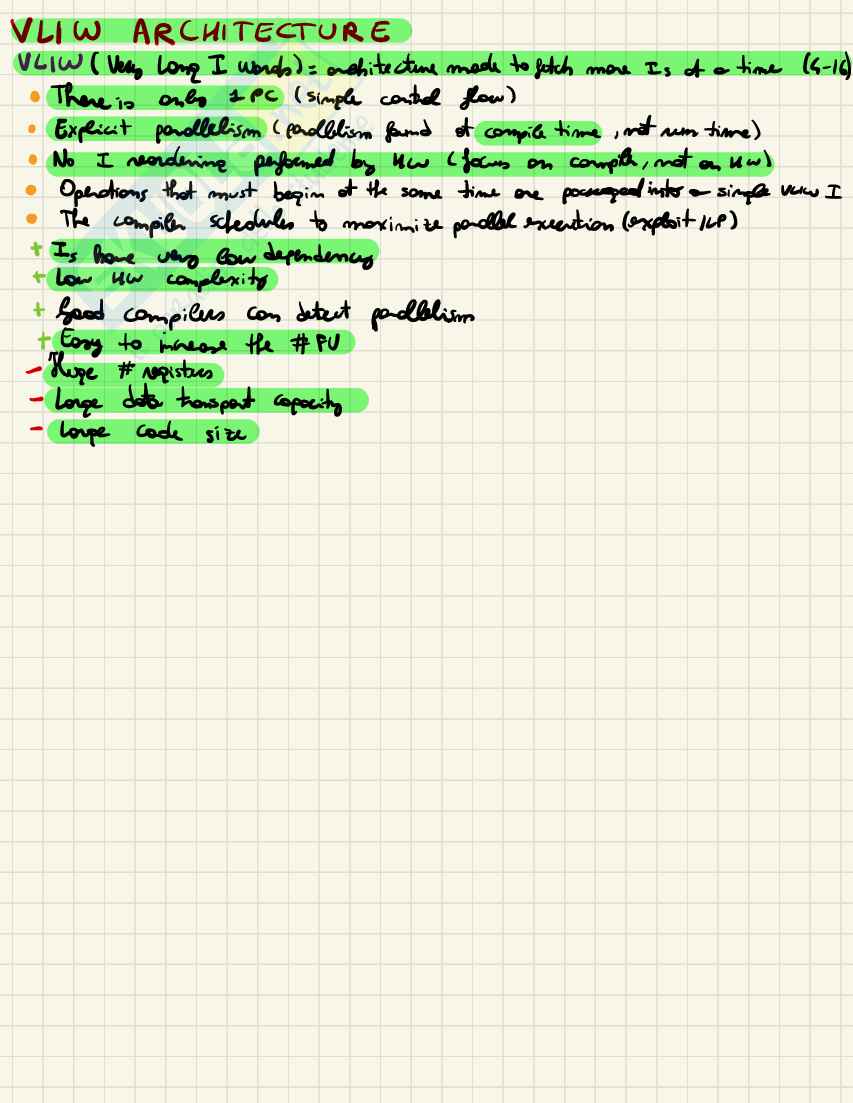 VLIW ARCHITECTURE
VLIW (Very Long I Words) = architecture made to fetch more Is at a time (4-16)
• There is only 1 PC (simple control flow)
• Explicit parallelism (parallelism found at compile time, not run time)
• No I reordering performed by HW (focus on compiler, not on HW)
• Operations that must begin at the same time are into a single VLIW I
• The compiler schedules to maximize parallel execution (exploit ILP)
+ Is have very low dependency
+ Low HW complexity
+ Good compilers can detect parallelism
+ Easy to increase the # FU
- Huge # registers
- Large data transport capacity
- Large code size